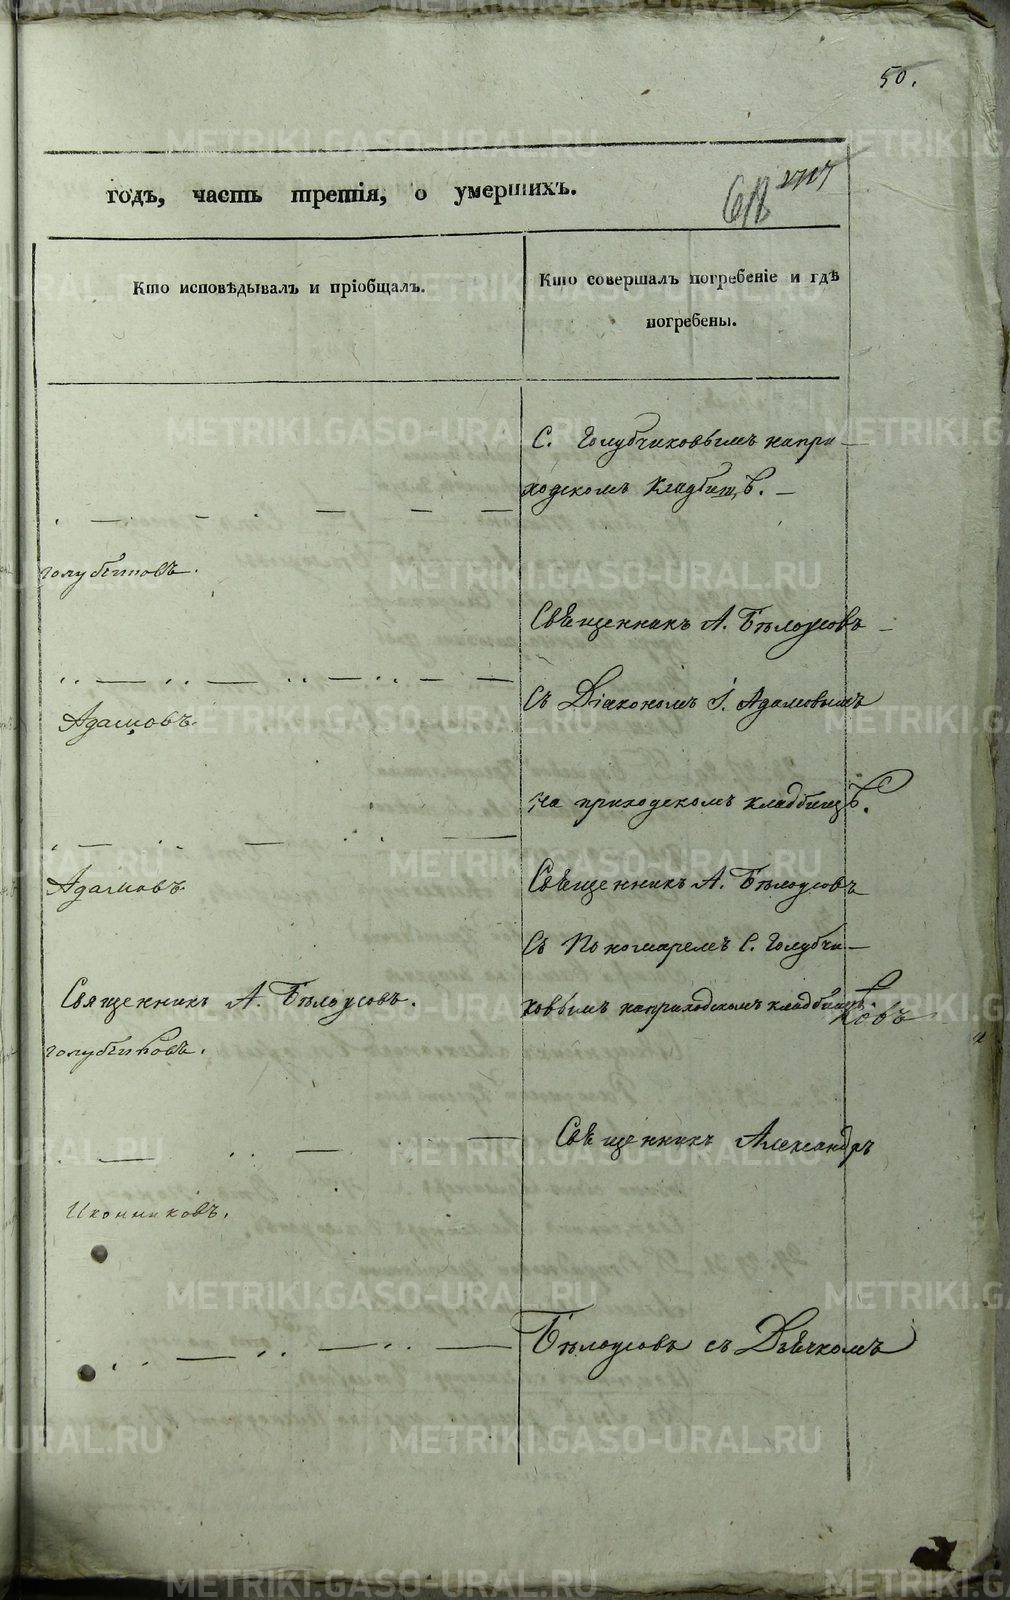 50.
годъ, часть третія, о умершихъ.
Кто исповѣдывалъ и пріобщалъ.
Кто совершалъ погребеніе и гдѣ
погребены.
С. Голубчиковымъ напри-
ходскомъ кладбищѣ.
Голубчиковъ.
Священникъ А. Бѣлоусовъ
Съ Діакономъ І. Адамовымъ
Адамовъ.
на приходскомъ кладбищѣ.
Адамовъ
Священникъ А. Бѣлоусовъ
Съ Пономаремъ С. Голубчи-
Священникъ А. Бѣлоусовъ.
ковымъ наприходскомъ кладбищѣ.
ковъ
Голубчиковъ.
Священникъ Александръ
Иконниковъ.
Бѣлоусовъ съ Дьячкомъ
METRIKI.GASO-URAL.RU